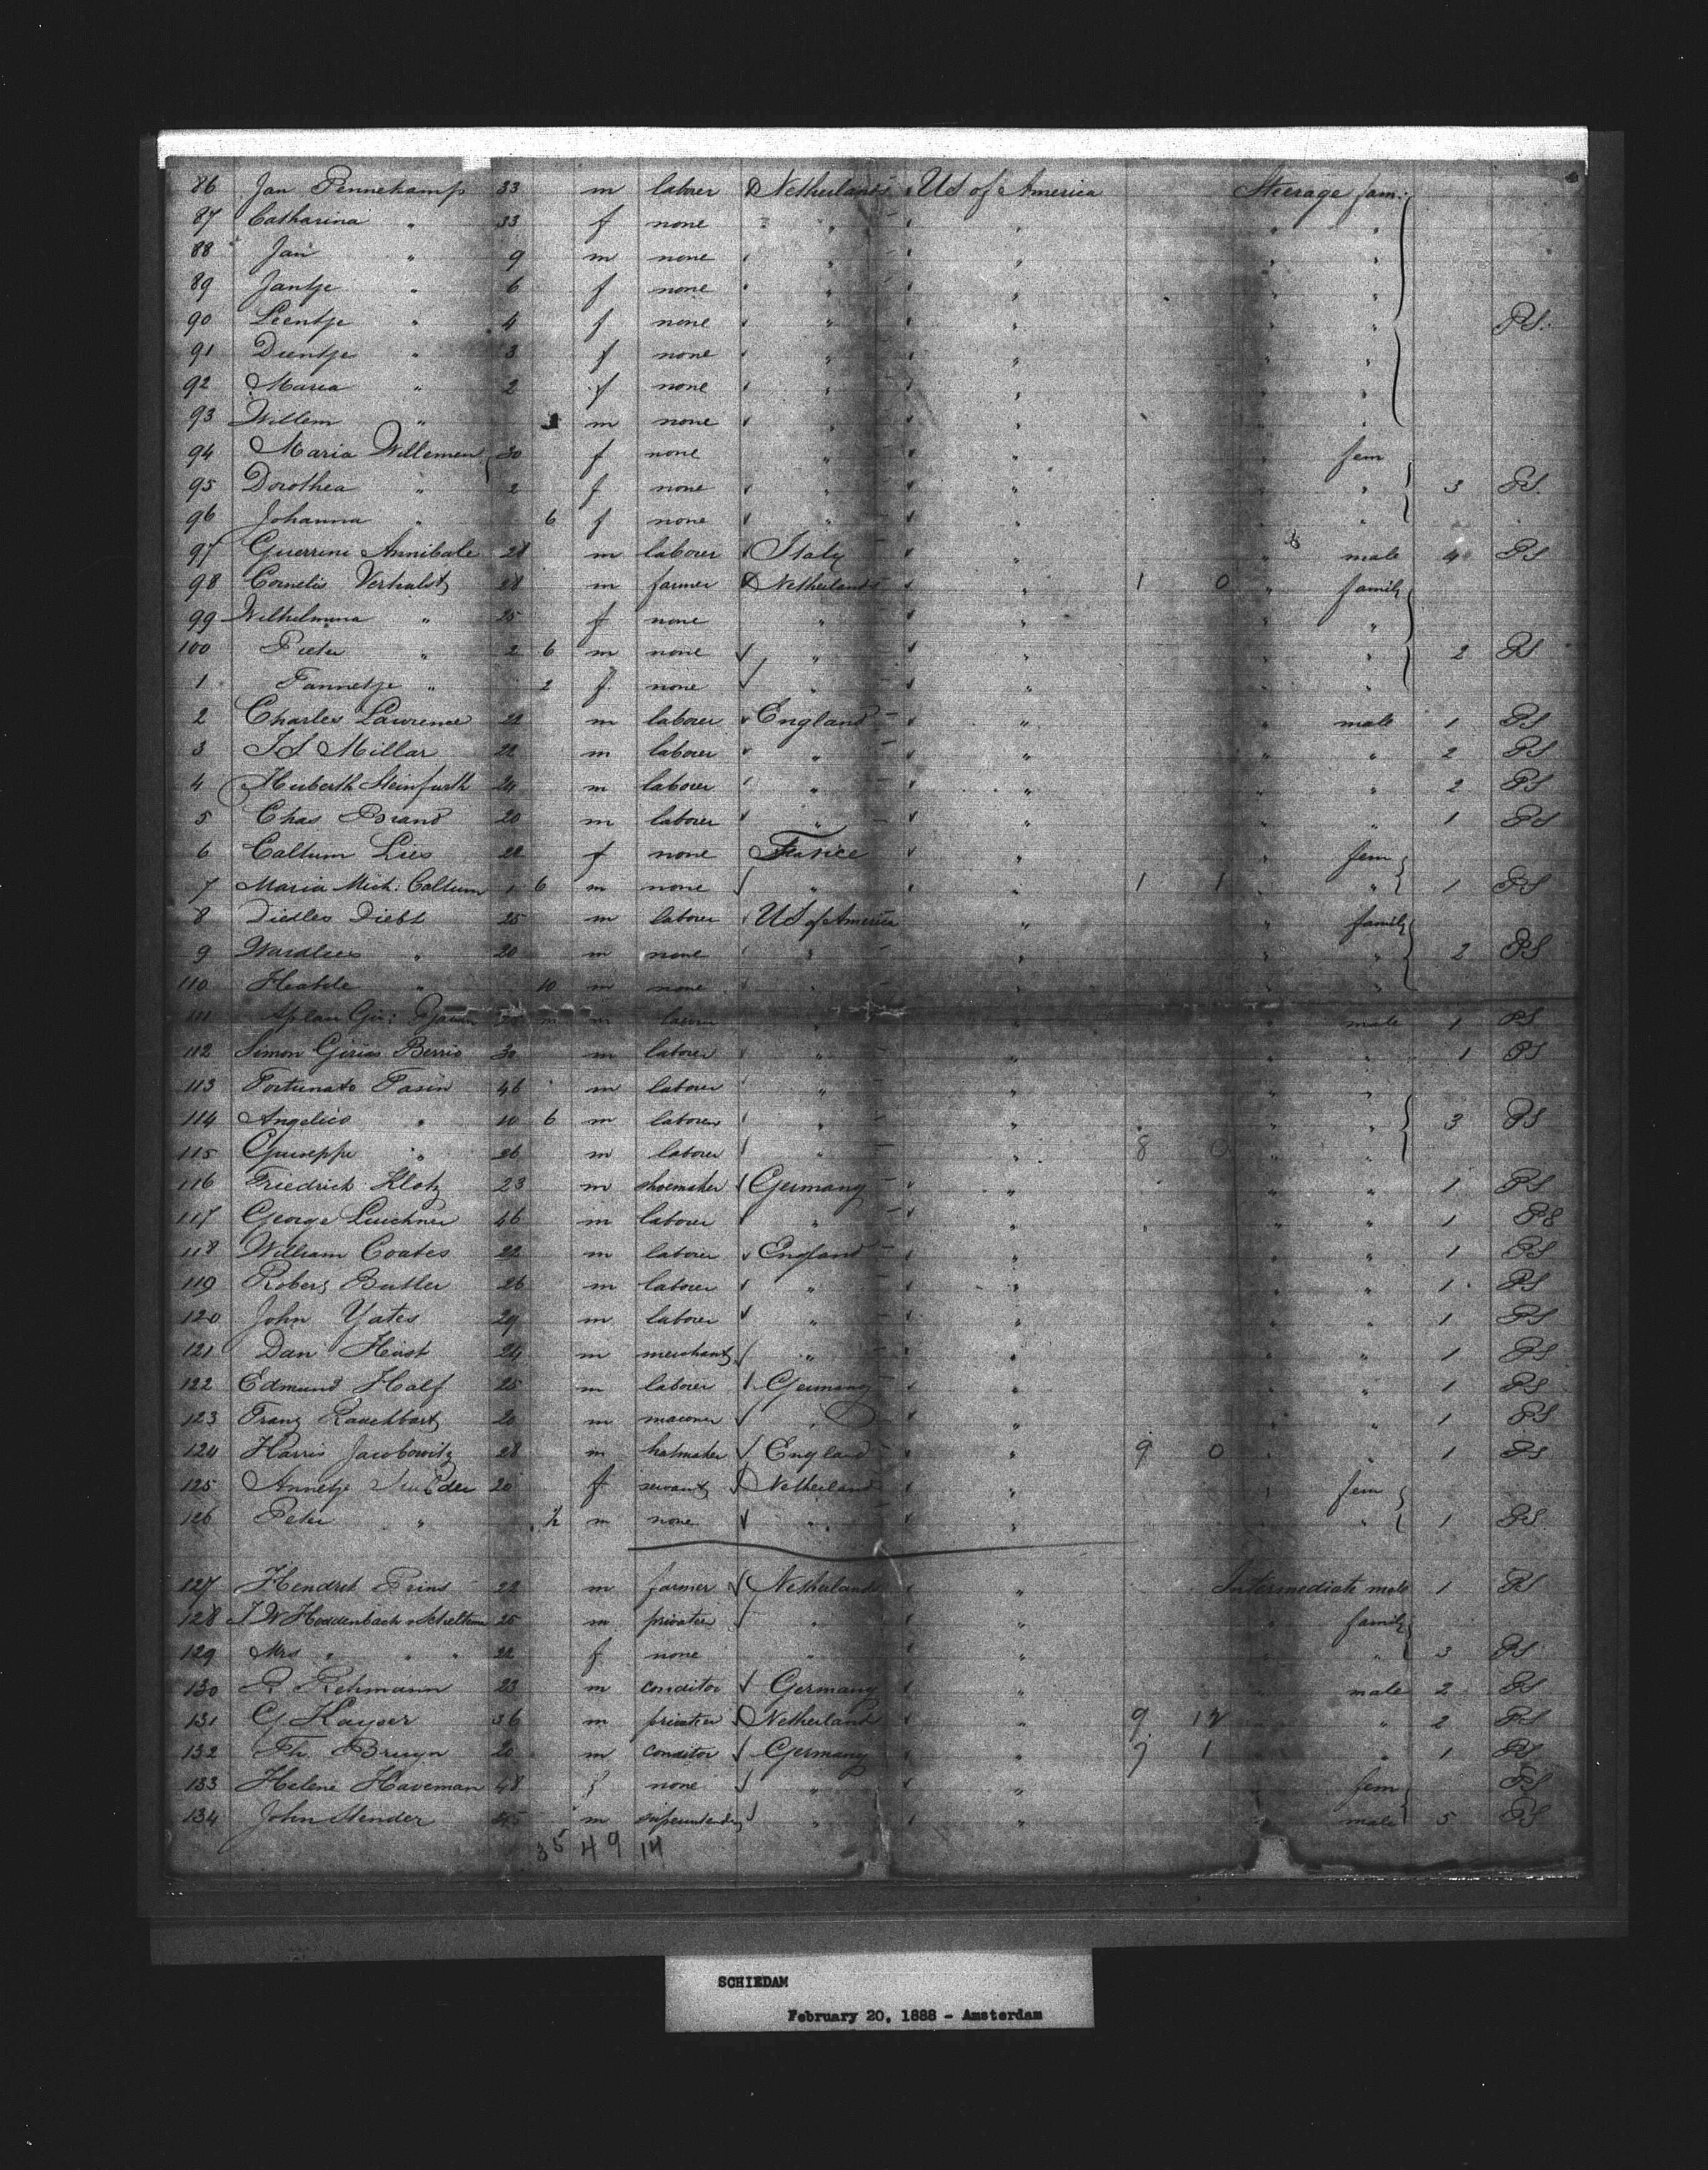 86 Jan Pennekamp 33 m labour Netherlands US of America Steerage fam:
87 Catharina " 33 f none " " " "
88 Jan " 9 m none " " " "
89 Jantje " 6 f none " " " "
90 Leentje " 4 f none " " " " PS.
91 Dientje " 3 f none " " " "
92 Maria " 2 f none " " " "
93 Willem " m none " " " "
94 Maria Willemen 30 f none " " " fem
95 Dorothea " 2 f none " " " " 3 PS.
96 Johanna " 6 f none " " " "
97 Guerrini Annibale 28 m labour Italy " " male 4 PS
98 Cornelis Verhulst 28 m farmer Netherlands " 1 0 " family
99 Wilhelmina " 25 f none " " " "
100 Pieter " 2 6 m none " " " " 2 PS
1 Tannetje " 2 f. none " " " "
2 Charles Lawrence 22 m labour England " " male 1 PS
3 Millar 22 m labour " " " " 2 PS
4 Huberth Steinfurth 24 m labour " " " " 2 PS
5 Chas Brand 20 m labour " " " " 1 PS
6 Caltum Lies 22 f none France " " fem
7 Maria Mich: Caltum 1 6 m none " " 1 1 " " 1 PS
8 Diebt 25 m labour US of America " " family
9 " 20 m none " " " " 2 PS
110 " 10 m none " " " "
111 m labour " " " male 1 PS
112 Simon Girias Berrio 30 m labour " " " " 1 PS
113 Fortunato Pasin 46 m labour " " " "
114 Angelico " 10 6 m labour " " " " 3 PS
115 Guiseppe " 26 m labour " " 8 0 " "
116 Friedrich Klotz 23 m shoemaker Germany " " " 1 PS
117 George 46 m labour " " " " 1 PS
118 William Coates 22 m labour England " " " 1 PS
119 Robert Butler 26 m labour " " " " 1 PS
120 John Yates 29 m labour " " " " 1 PS
121 Dan Hirst 24 m merchant " " " " 1 PS
122 Edmund Half 25 m labour Germany " " " 1 PS
123 Franz 20 m " " " " 1 PS
124 Harris Jacobowitz 28 m hatmaker England " 9 0 " " 1 PS
125 Annetje 20 f servant Netherland " " fem
126 Peter " ½ m none " " " " 1 PS
127 Hendrik Prins 22 m farmer Netherland " Intermediate male 1 PS
128 25 m privatier " " " family
129 Mrs " " " 22 f none " " " " 3 PS
130 R. Rehmann 23 m conditor Germany " " male 2 PS
131 G Kayser 36 m privatier Netherland " 9 12 " 2 PS
132 Th. Bruyn 20 m conditor Germany " 9 1 " 1 PS
133 Helene Haveman 48 f none " " fem PS
134 John Stender 45 m " " male 5 PS
35 49 14
SCHIEDAM
February 20, 1888 - Amsterdam